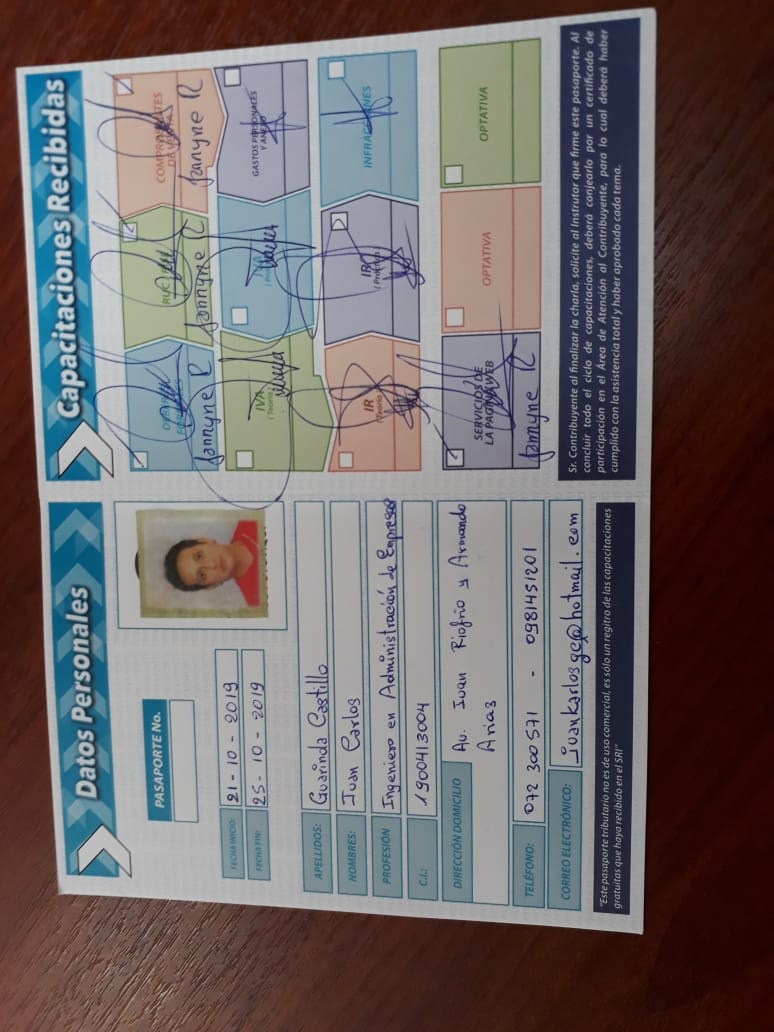 Datos Personales
PASAPORTE No.
FECHA INICIO: 21-10-2019
FECHA FIN: 25-10-2019
APELLIDOS: Guarinda Castillo
NOMBRES: Juan Carlos
PROFESIÓN Ingeniero en Administración de Empresas
C.I.: 1900413004
DIRECCIÓN DOMICILIO Av. Juan Riofrio y Armando
Arias
TELÉFONO: 072 300 571 - 0981451201
CORREO ELECTRÓNICO: juankarlosgc@hotmail.com
"Este pasaporte tributario no es de uso comercial, es solo un regitro de las capacitaciones
gratuitas que haya recibido en el SRI"
Capacitaciones Recibidas
FORMALES
Jannyne R
RUC
Jannyne R
COMPROBANTES
DE VENTA
Jannyne R
IVA
(Teoría)
IVA
GASTOS PERSONALES
Y ANEXO
IR
(Teoría)
IR
(Práctica)
INFRACCIONES
SERVICIOS DE
LA PAGINA WEB
Jannyne R
OPTATIVA
OPTATIVA
Sr. Contribuyente al finalizar la charla, solicite al Instrutor que firme este pasaporte. Al
concluir todo el ciclo de capacitaciones, deberá conjearlo por un certificado de
participación en el Área de Atención al Contribuyente, para lo cual deberá haber
cumplido con la asistencia total y haber aprobado cada tema.